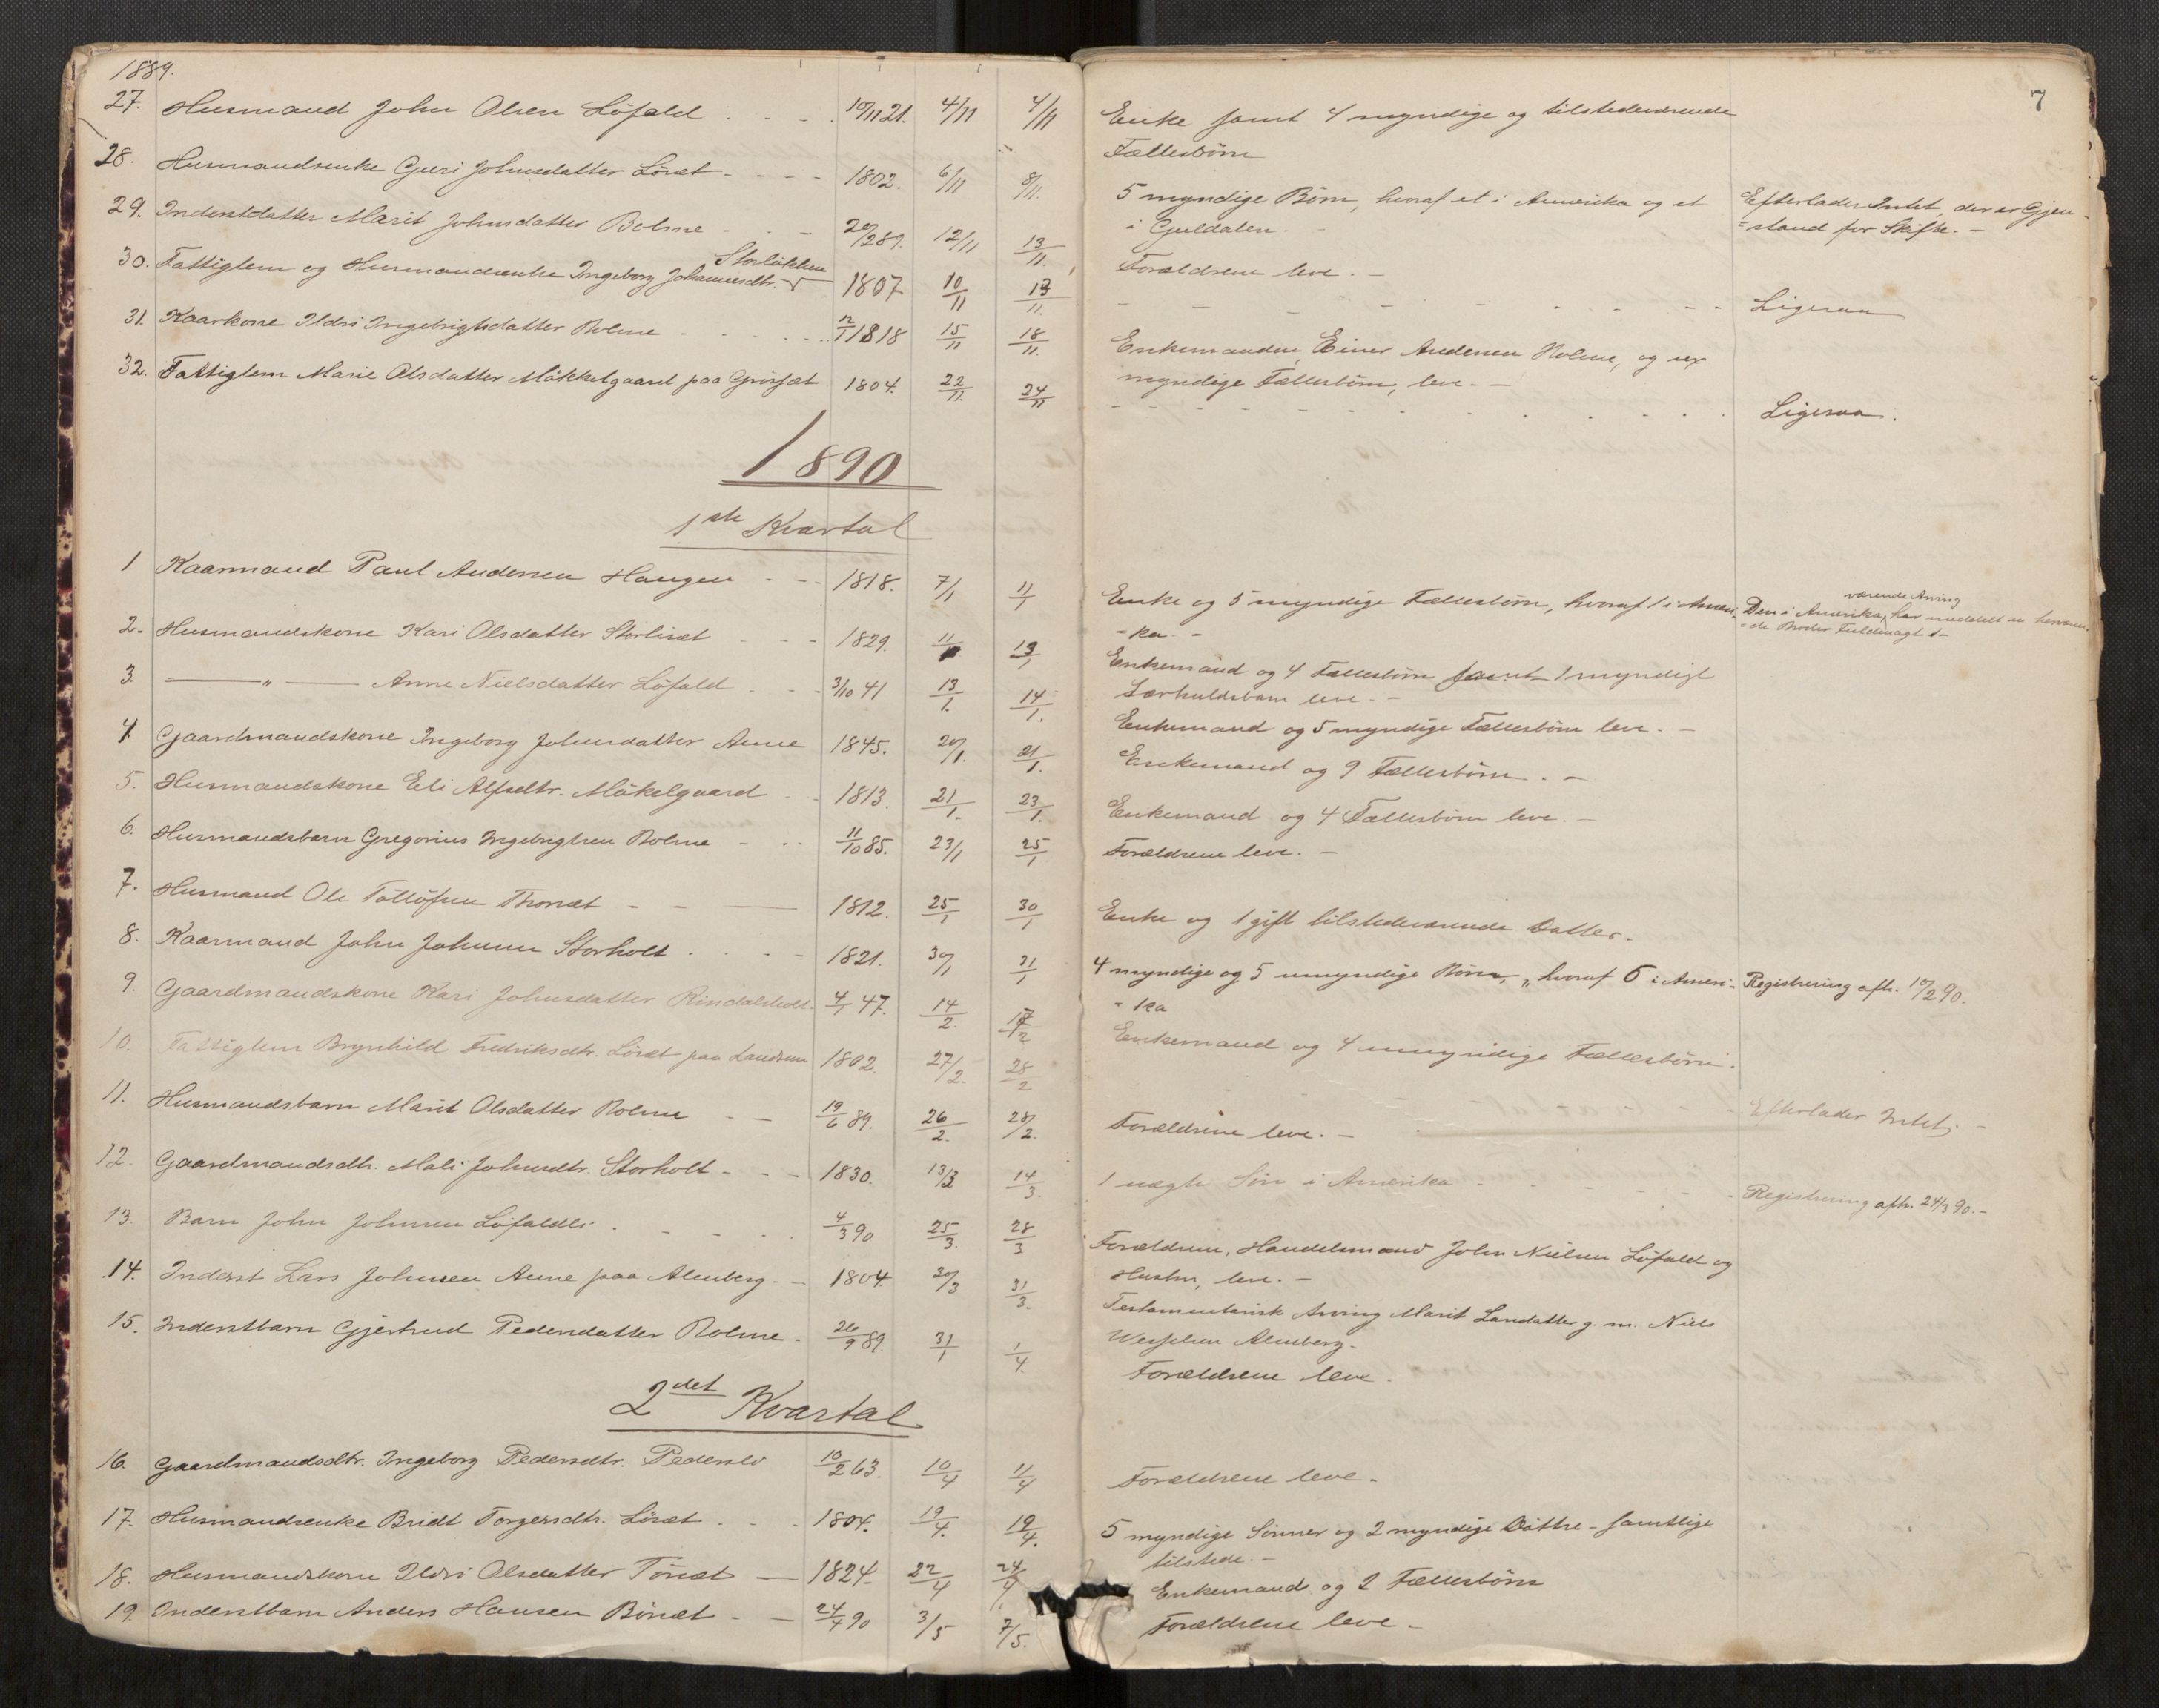 1889.
7
27. Husmand John Olsen Löfald 10/11 21. 4/11 4/11 Enke samt 4 myndige og tilstedeværende
Fællesbørn
28. Husmandsenke Guri Johnsdatter Löset 1802. 6/11 8/11. 5 myndige Børn, hvoraf et i Amerika og et Efterlader Intet, der er Gjen-
i Guldalen. - =stand for Skifte. -
29. Inderstdatter Marit Johnsdatter Bolme 20/2 89. 12/11 13/11. Forældrene leve. -
Storløkken
30. Fattiglem og Husmandsenke Ingeborg Johannesdtr. 1807 10/11 13/11. Ligesaa
31. Kaarkone Ildri Ingebrigtsdatter Bolme 12/1 1818 15/11 18/11. Enkemanden, Einer Andersen Holme, og sex
myndige Fællesbørn, leve. -
32. Fattiglem Marie Olsdatter Mökkelgaard paa Grisset 1804. 22/11. 24/11 Ligesaa.
1890
1ste Kvartal
1 Kaarmand Paul Andersen Haugen 1818. 7/1 11/1 Enke og 5 myndige Fællesbørn, hvoraf 1 i Ameri-
værende Arving
Den i Amerika har meddelt en herværen-
- ka. - - de Broder Fuldmagt. -
2. Husmandskone Kari Olsdatter Storliset 1829. 11/1 13/1 Enkemand og 4 Fællesbørn samt 1 myndigt
Særkuldsbarn leve. -
3. — „ — Anne Nielsdatter Löfald 3/10 41 13/1. 14/1. Enkemand og 5 myndige Fællesbørn leve. -
4 Gaardmandskone Ingeborg Johnsdatter Aune 1845. 20/1. 21/1. Enkemand og 9 Fællesbørn. -
5. Husmandskone Eli Alfsdtr. Mökelgaard 1813. 21/1. 23/1. Enkemand og 4 Fællesbørn leve. -
6. Husmandsbarn Gregorius Ingebrigtsen Bolme 11/10 85. 23/1 25/1 Forældrene leve. -
7. Husmand Ole Töllöfsen Thorset 1812. 25/1 30/1 Enke og 1 gift tilstedeværende Datter.
8. Kaarmand John Johnsen Storholt 1821. 30/1 31/1 4 myndige og 5 umyndige Børn, „ hvoraf 6 i Ameri- Registrering afh. 10/2 90.
- ka
9. Gaardmandskone Kari Johnsdatter Rindalsholt 4/1 47. 14/2. 17/2 Enkemand og 4 umyndige Fællesbørn.
10. Fattiglem Brynhild Fredriksdtr. Löset paa Landsem 1802. 27/2. 28/2 Efterlader Intet. -
11. Husmandsbarn Marit Olsdatter Bolme 19/6 89. 26/2. 28/2. Forældrene leve. -
12. Gaardmandsdtr. Mali Johnsdtr. Storholt 1830. 13/3 14/3. 1 uægte Søn i Amerika Registrering afh. 24/3 90. -
13. Barn John Johnsen Löfaldli 4/3 90 25/3. 28/3 Forældrene, Handelsmand John Nielsen Löfald og
Hustru, leve. -
14. Inderst Lars Johnsen Aune paa Almberg 1804. 30/3 31/3. Testamentarisk Arving Marit Larsdatter g. m. Niels
Wesselsen Almberg.
15. Inderstbarn Gjertrud Pedersdatter Bolme 26/9 89. 31/1 1/4. Forældrene leve.
2det Kvartal
16. Gaardmandsdtr. Ingeborg Pedersdtr. Pederslö 10/2 63. 10/4 11/4 Forældrene leve.
17. Husmandsenke Bridt Torgersdtr. Löset 1804. 19/4. 19/4. 5 myndige Sønner og 2 myndige Døttre - samtlige
tilstede. -
18. Husmandskone Ildri Olsdatter Törset 1824. 22/4 24/4. Enkemand og 2 Fællesbørn
19. Inderstbarn Anders Hansen Börset 24/4 90 3/5 7/5. Forældrene leve.